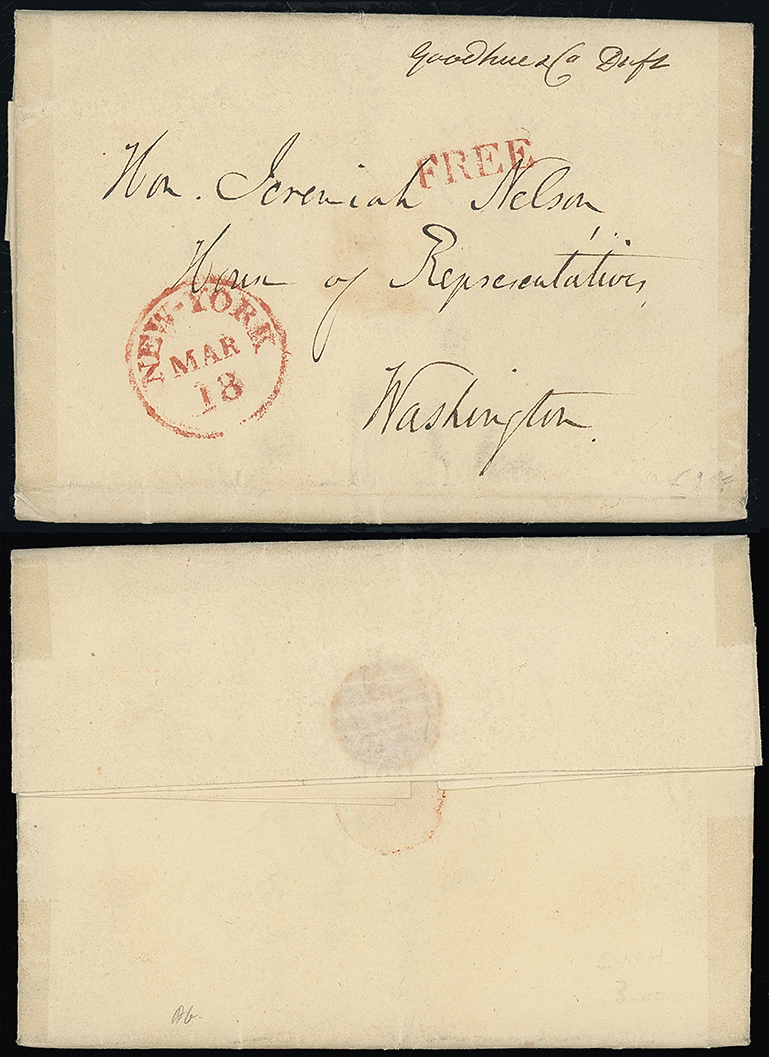 Goodhue & Co Draft
FREE
Hon. Jeremiah Nelson
House of Representatives,
NEW-YORK
MAR
18
Washington.